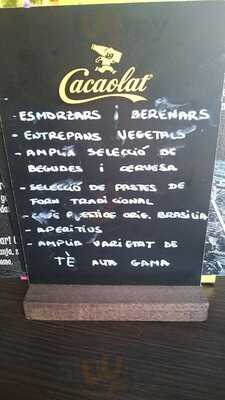 Cacaolat
- ESMORZARS I BERENARS
- ENTREPANS VEGETALS
- AMPLIA SELECCIÓ DE
BEGUDES I CERVESA
- SELECCIÓ DE PASTES DE
FORN TRADICIONAL
- CAFÈ ORIG. BRASILIA
- APERITIUS
- AMPLIA VARIETAT DE
TÈ ALTA GAMA